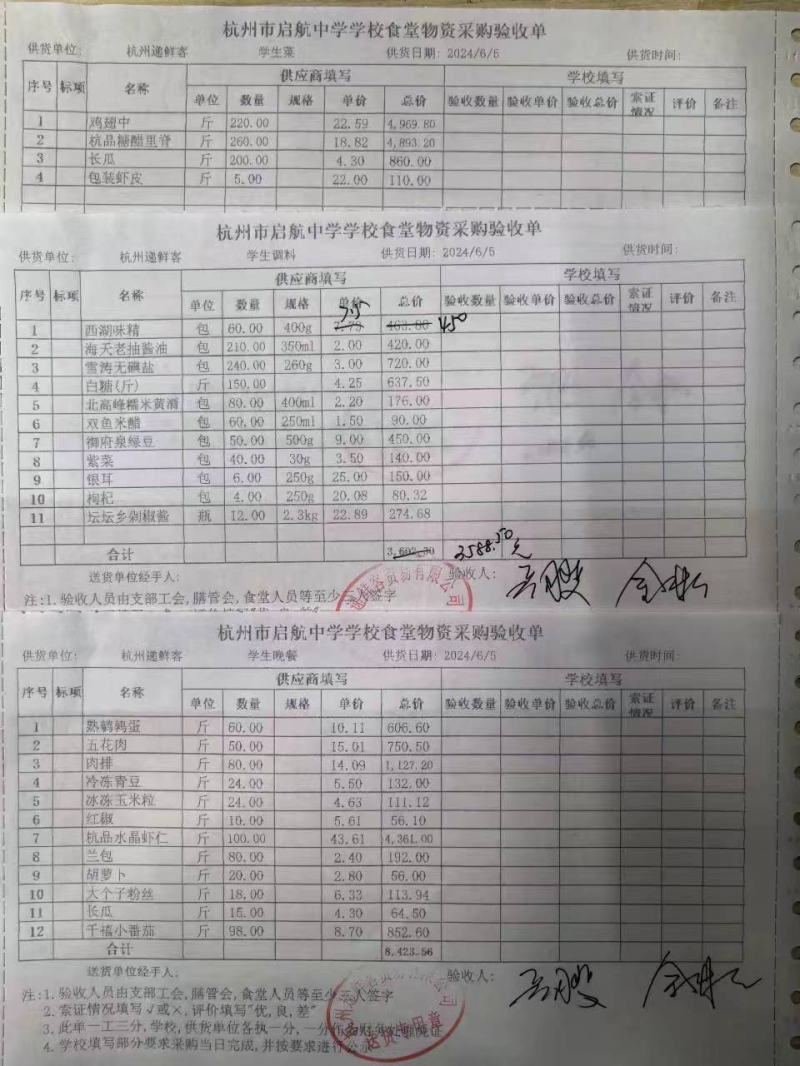 杭州市启航中学学校食堂物资采购验收单
供货单位: 杭州递鲜客 学生菜 供货日期: 2024/6/5 供货时间:
供应商填写 学校填写
序号 标项 名称 单位 数量 规格 单价 总价 验收数量 验收单价 验收总价 索证情况 评价 备注
1 鸡翅中 斤 220.00 22.59 4,969.80
2 杭品糖醋里脊 斤 260.00 18.82 4,893.20
3 长瓜 斤 200.00 4.30 860.00
4 包装虾皮 斤 5.00 22.00 110.00
杭州市启航中学学校食堂物资采购验收单
供货单位: 杭州递鲜客 学生调料 供货日期: 2024/6/5 供货时间:
供应商填写 学校填写
序号 标项 名称 单位 数量 规格 单价 总价 验收数量 验收单价 验收总价 索证情况 评价 备注
7.5
1 西湖味精 包 60.00 400g 463.80 450
2 海天老抽酱油 包 210.00 350ml 2.00 420.00
3 雪涛无碘盐 包 240.00 260g 3.00 720.00
4 白糖(斤) 斤 150.00 4.25 637.50
5 北高峰糯米黄酒 包 80.00 400ml 2.20 176.00
6 双鱼米醋 包 60.00 250ml 1.50 90.00
7 御府泉绿豆 包 50.00 500g 9.00 450.00
8 紫菜 包 40.00 30g 3.50 140.00
9 银耳 包 6.00 250g 25.00 150.00
10 枸杞 包 4.00 250g 20.08 80.32
11 坛坛乡剁椒酱 瓶 12.00 2.3kg 22.89 274.68
合计 3,602.30 3588.50元
送货单位经手人: 验收人:
注:1. 验收人员由支部工会,膳管会,食堂人员等至少三人签字
杭州市启航中学学校食堂物资采购验收单
供货单位: 杭州递鲜客 学生晚餐 供货日期: 2024/6/5 供货时间:
供应商填写 学校填写
序号 标项 名称 单位 数量 规格 单价 总价 验收数量 验收单价 验收总价 索证情况 评价 备注
1 熟鹌鹑蛋 斤 60.00 10.11 606.60
2 五花肉 斤 50.00 15.01 750.50
3 肉排 斤 80.00 14.09 1,127.20
4 冷冻青豆 斤 24.00 5.50 132.00
5 冰冻玉米粒 斤 24.00 4.63 111.12
6 红椒 斤 10.00 5.61 56.10
7 杭品水晶虾仁 斤 100.00 43.61 4,361.00
8 兰包 斤 80.00 2.40 192.00
9 胡萝卜 斤 20.00 2.80 56.00
10 大个子粉丝 斤 18.00 6.33 113.94
11 长瓜 斤 15.00 4.30 64.50
12 千禧小番茄 斤 98.00 8.70 852.60
合计 8,423.56
送货单位经手人: 验收人:
注:1. 验收人员由支部工会,膳管会,食堂人员等至少三人签字
2. 索证情况填写√或×,评价填写"优,良,差"
3. 此单一工三分,学校,供货单位各执一分,一分作为财务收支凭证
4. 学校填写部分要求采购当日完成,并按要求进行公示
送货专用章